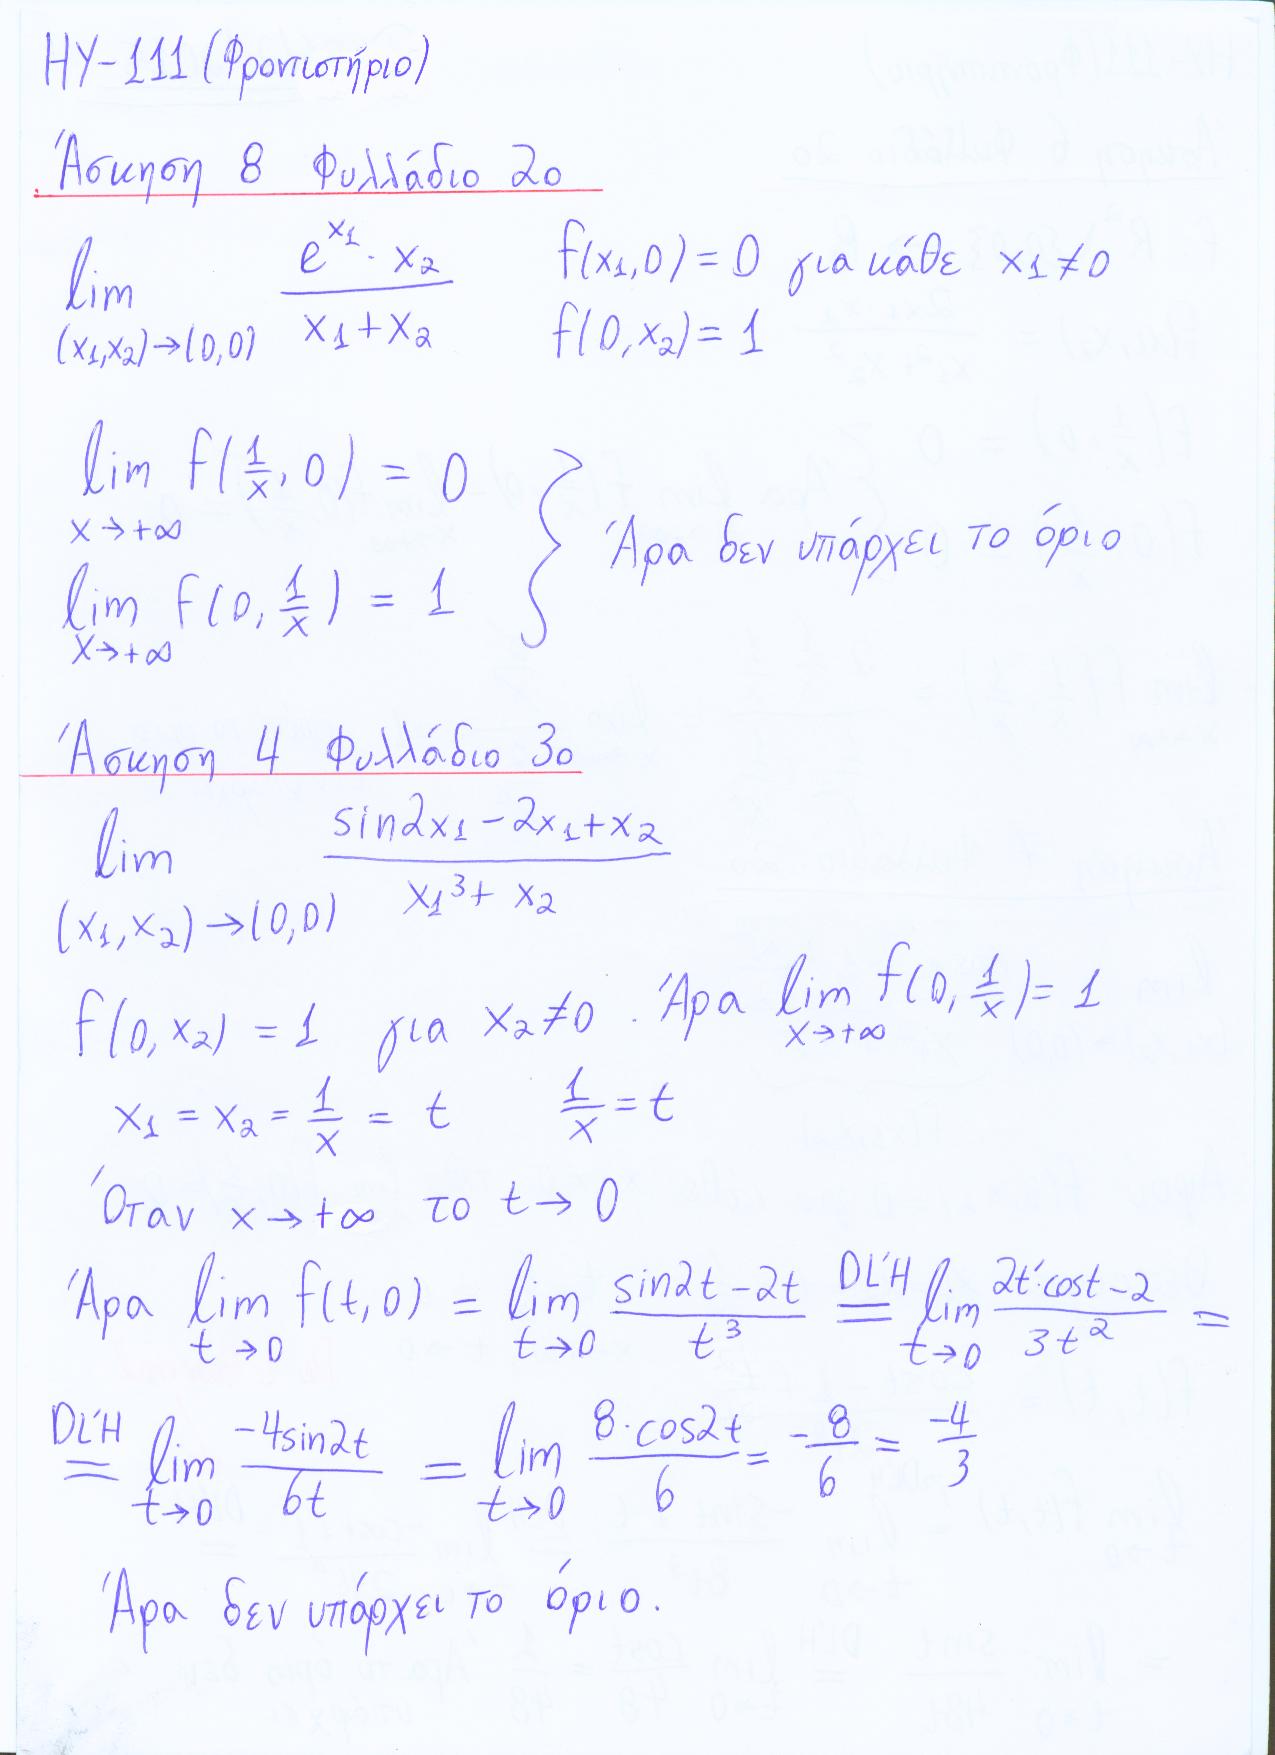 ΗΥ-111 (Φροντιστήριο)
Άσκηση 8 Φυλλάδιο 2ο
lim (x₁,x₂)→(0,0) (e^x₁ · x₂)/(x₁+x₂) f(x₁,0) = 0 για κάθε x₁≠0
f(0,x₂) = 1
lim x→+∞ f(1/x, 0) = 0
lim x→+∞ f(0, 1/x) = 1 } Άρα δεν υπάρχει το όριο
Άσκηση 4 Φυλλάδιο 3ο
lim (x₁,x₂)→(0,0) (sin2x₁-2x₁+x₂)/(x₁³+x₂)
f(0,x₂) = 1 για x₂≠0. Άρα lim x→+∞ f(0, 1/x) = 1
x₁ = x₂ = 1/x = t 1/x = t
Όταν x→+∞ το t→0
Άρα lim t→0 f(t,0) = lim t→0 (sin2t-2t)/t³ =DL'H lim t→0 (2t'·cost-2)/3t² =
=DL'H lim t→0 (-4sin2t)/6t = lim t→0 (8·cos2t)/6 = -8/6 = -4/3
Άρα δεν υπάρχει το όριο.